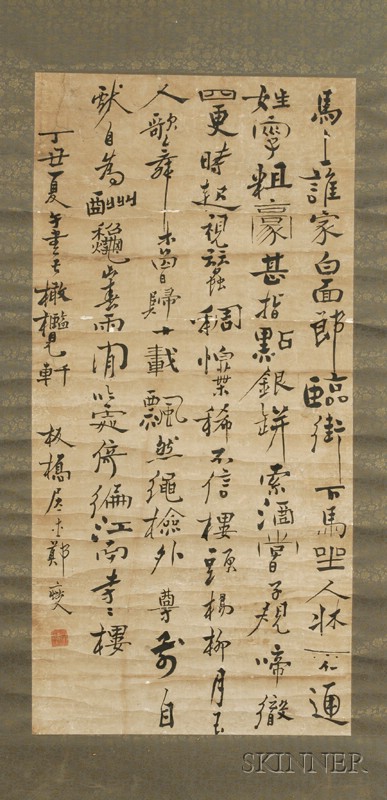 馬上誰家白面郎臨街下馬坐人牀不通
姓字粗豪甚指點銀缾索酒嘗子規啼徹
四更時起視蠶稠怕葉稀不信樓頭楊柳月玉
人歌舞未曾歸十載飄然繩檢外尊前自
獻自為酬龝山春雨閒吟處倚徧江南寺〻樓
丁丑夏午書於橄欖軒 板橋居士鄭燮
SKINNER